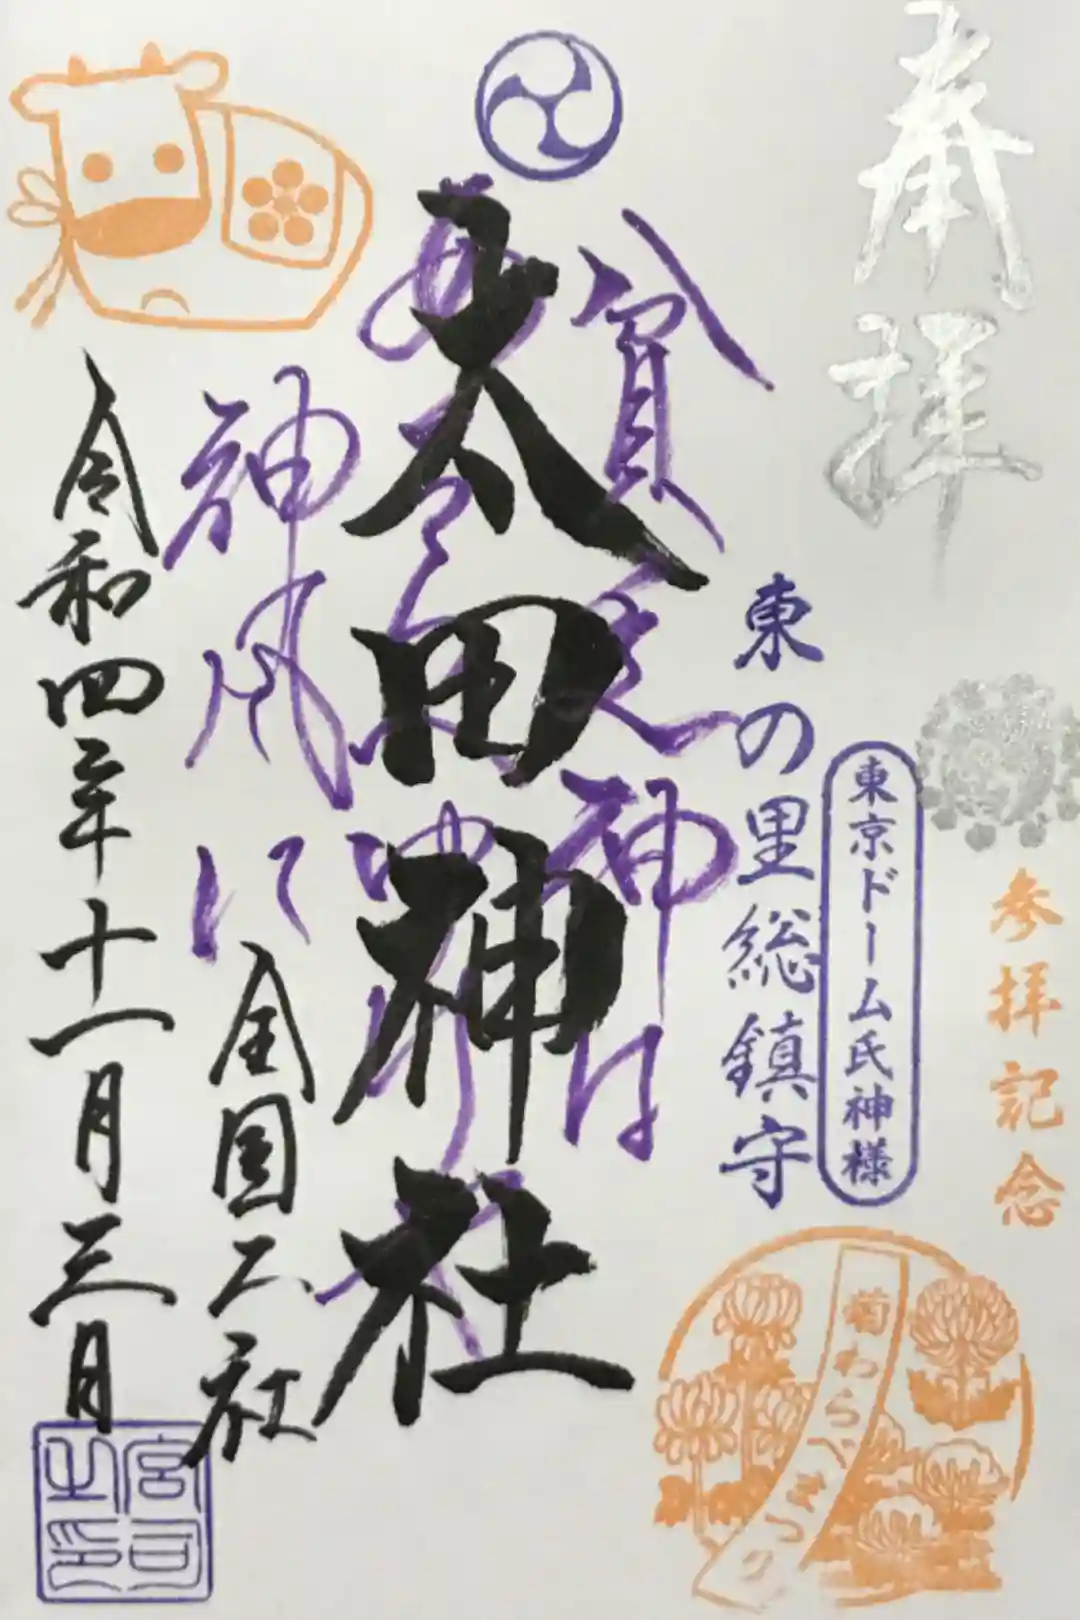 奉拝
参拝記念
東京ドーム氏神様
東の里総鎮守
貧乏神は
太田神社
神風に
全国二社
令和四年十一月三日
宮司之印
菊わらべまつり